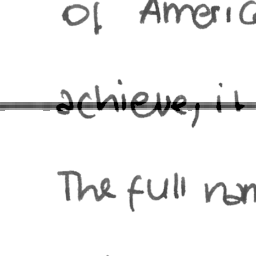 of Americ
achieve, it
The full nam